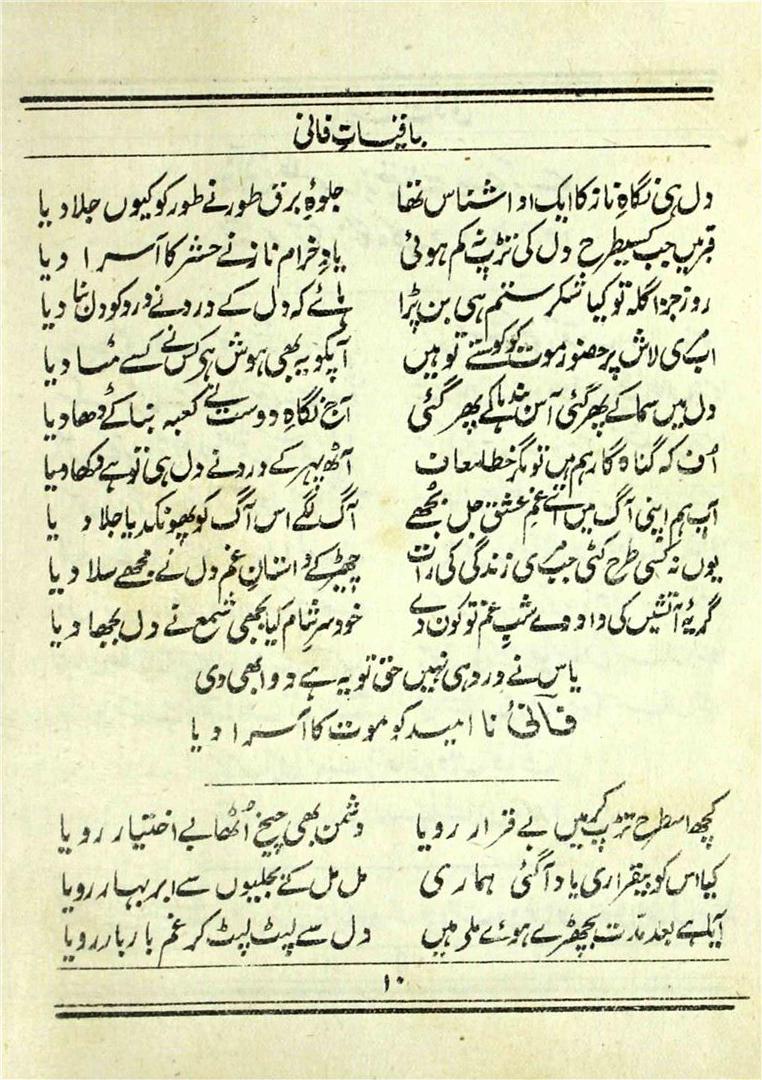 باقیاتِ فانی
دل ہی نگاہِ ناز کا ایک ادا شناس تھا جلوۂ برق طور نے طور کو کیوں جلا دیا
قبر میں جب کسیطرح دل کی تڑپ نہ کم ہوئی یادِ خرامِ ناز نے حشر کا آسرا دیا
روز جزا گلہ تو کیا شکر ستم ہی بن پڑا ہائے کہ دل کے درد نے درد کو دل بنا دیا
اب مری لاش پر حضور موت کو کوستے تو ہیں آپکو یہ بھی ہوش ہے کس نے کسے مٹا دیا
دل میں سما کے پھر گئی آس بندھا کے پھر گئی آج نگاہِ دوست نے کعبہ بنا کے ڈھا دیا
اُف کہ گناہ گار ہم ہیں تو مگر خطا معاف آٹھ پہر کے درد نے دل ہی تو ہے دکھا دیا
آپ ہم اپنی آگ میں اے غمِ عشق جل بُجھے آگ لگے اس آگ کو پھونکدیا جلا دیا
یوں نہ کسی طرح کٹی جب مری زندگی کی رات چھیڑ کے داستانِ غم دل نے مجھے سلا دیا
گریۂ آتشیں کی داد دے شبِ غم تو کون دے خود سرِ شام کیا بجھی شمع نے دل بجھا دیا
یاس نے درد ہی نہیں حق تو یہ ہے دوا بھی دی
فانیؔ نا امید کو موت کا آسرا دیا
کچھ اسطرح تڑپ کر میں بے قرار رویا دشمن بھی چیخ اُٹھا بے اختیار رویا
کیا اس کو بیقراری یاد آگئی ہماری مل مل کے بجلیوں سے ابر بہار رویا
آیا ہے بعد مدت بچھڑے ہوئے ملے ہیں دل سے لپٹ لپٹ کر غم بار بار رویا
۱۰